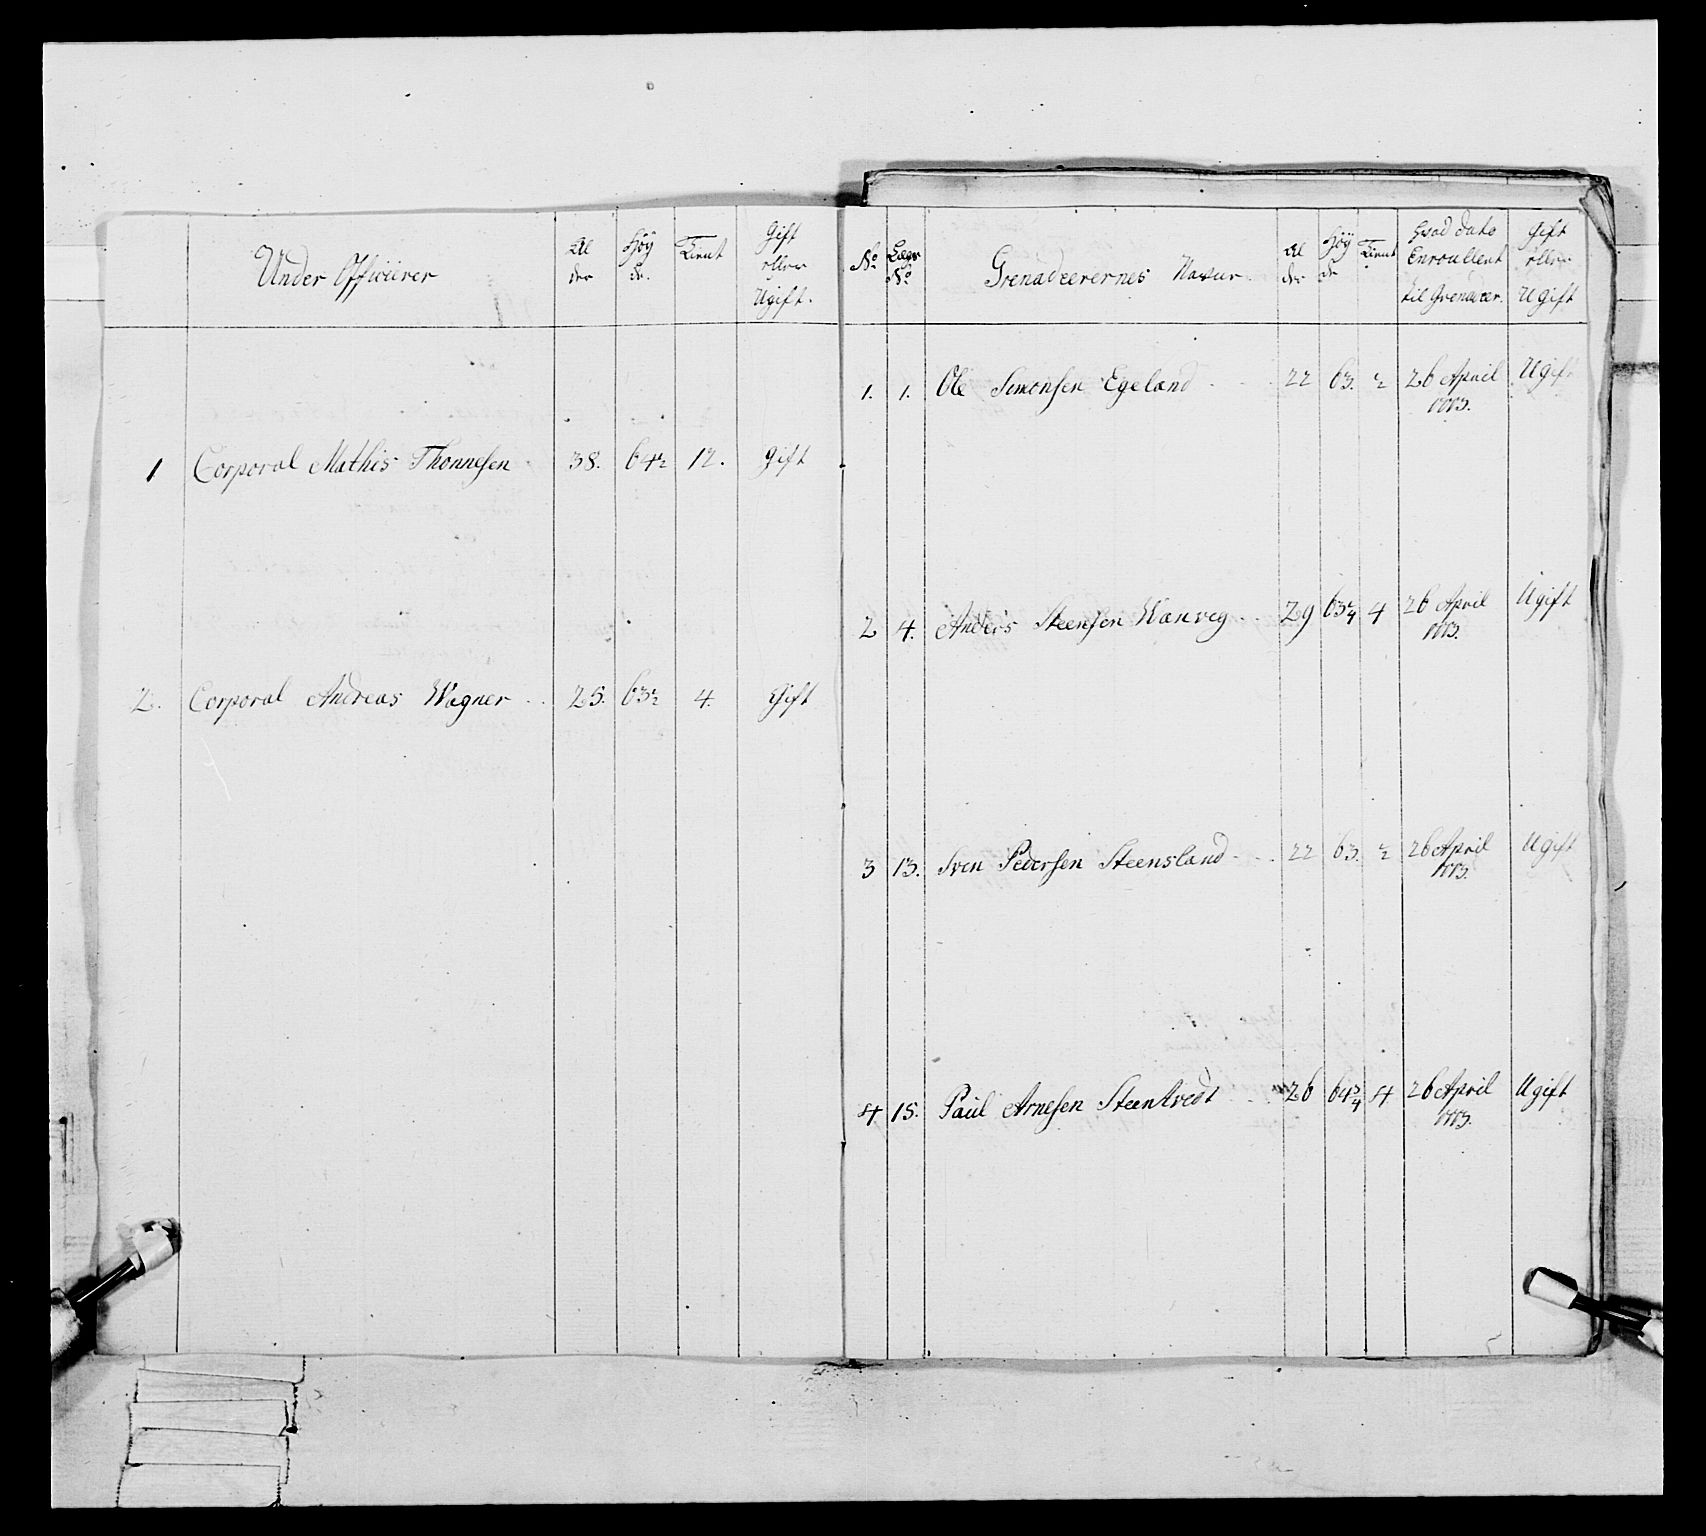 Under Officierer
Al
der
Höy
de.
Tient
Gift
eller
Ugift.
1 Corporal Mathis Thonnesen 38. 64½ 12. gift
2. Corporal Andreas Wagner 25. 63½ 4. Gift
No
Lægs
No
Grenadeerernes Navne
Al
der
Höy
de
Tient
Hvad dato
Enroullert
til Grenadeer.
Gift
eller
Ugift
1. 1. Ole Simonsen Egeland 22 63. ½ 26 April Ugift
2 4. Anders Steensen Wanveg 29 63¾ 4 26 April Ugift
3 13. Sven Pedersen Steensland 22 63. ½ 26 April Ugift
4 15. Paul Arnesen Steentvedt 26 64¾ 4 26 April Ugift